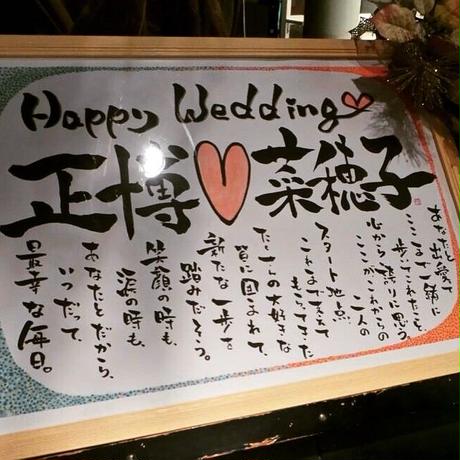 Happy Wedding
正博♡菜穂子
あなたと出会えて
ここまで一緒に
歩いてこれたこと、
心から幸せに思う。
ここがこれからの二人の
スタート地点。
これまで支えて
もらってきた
たくさんの大好きな
皆に囲まれて、
新たな一歩を
踏みだそう。
笑顔の時も、
涙の時も、
あなたとだから、
いつだって、
最幸な毎日。